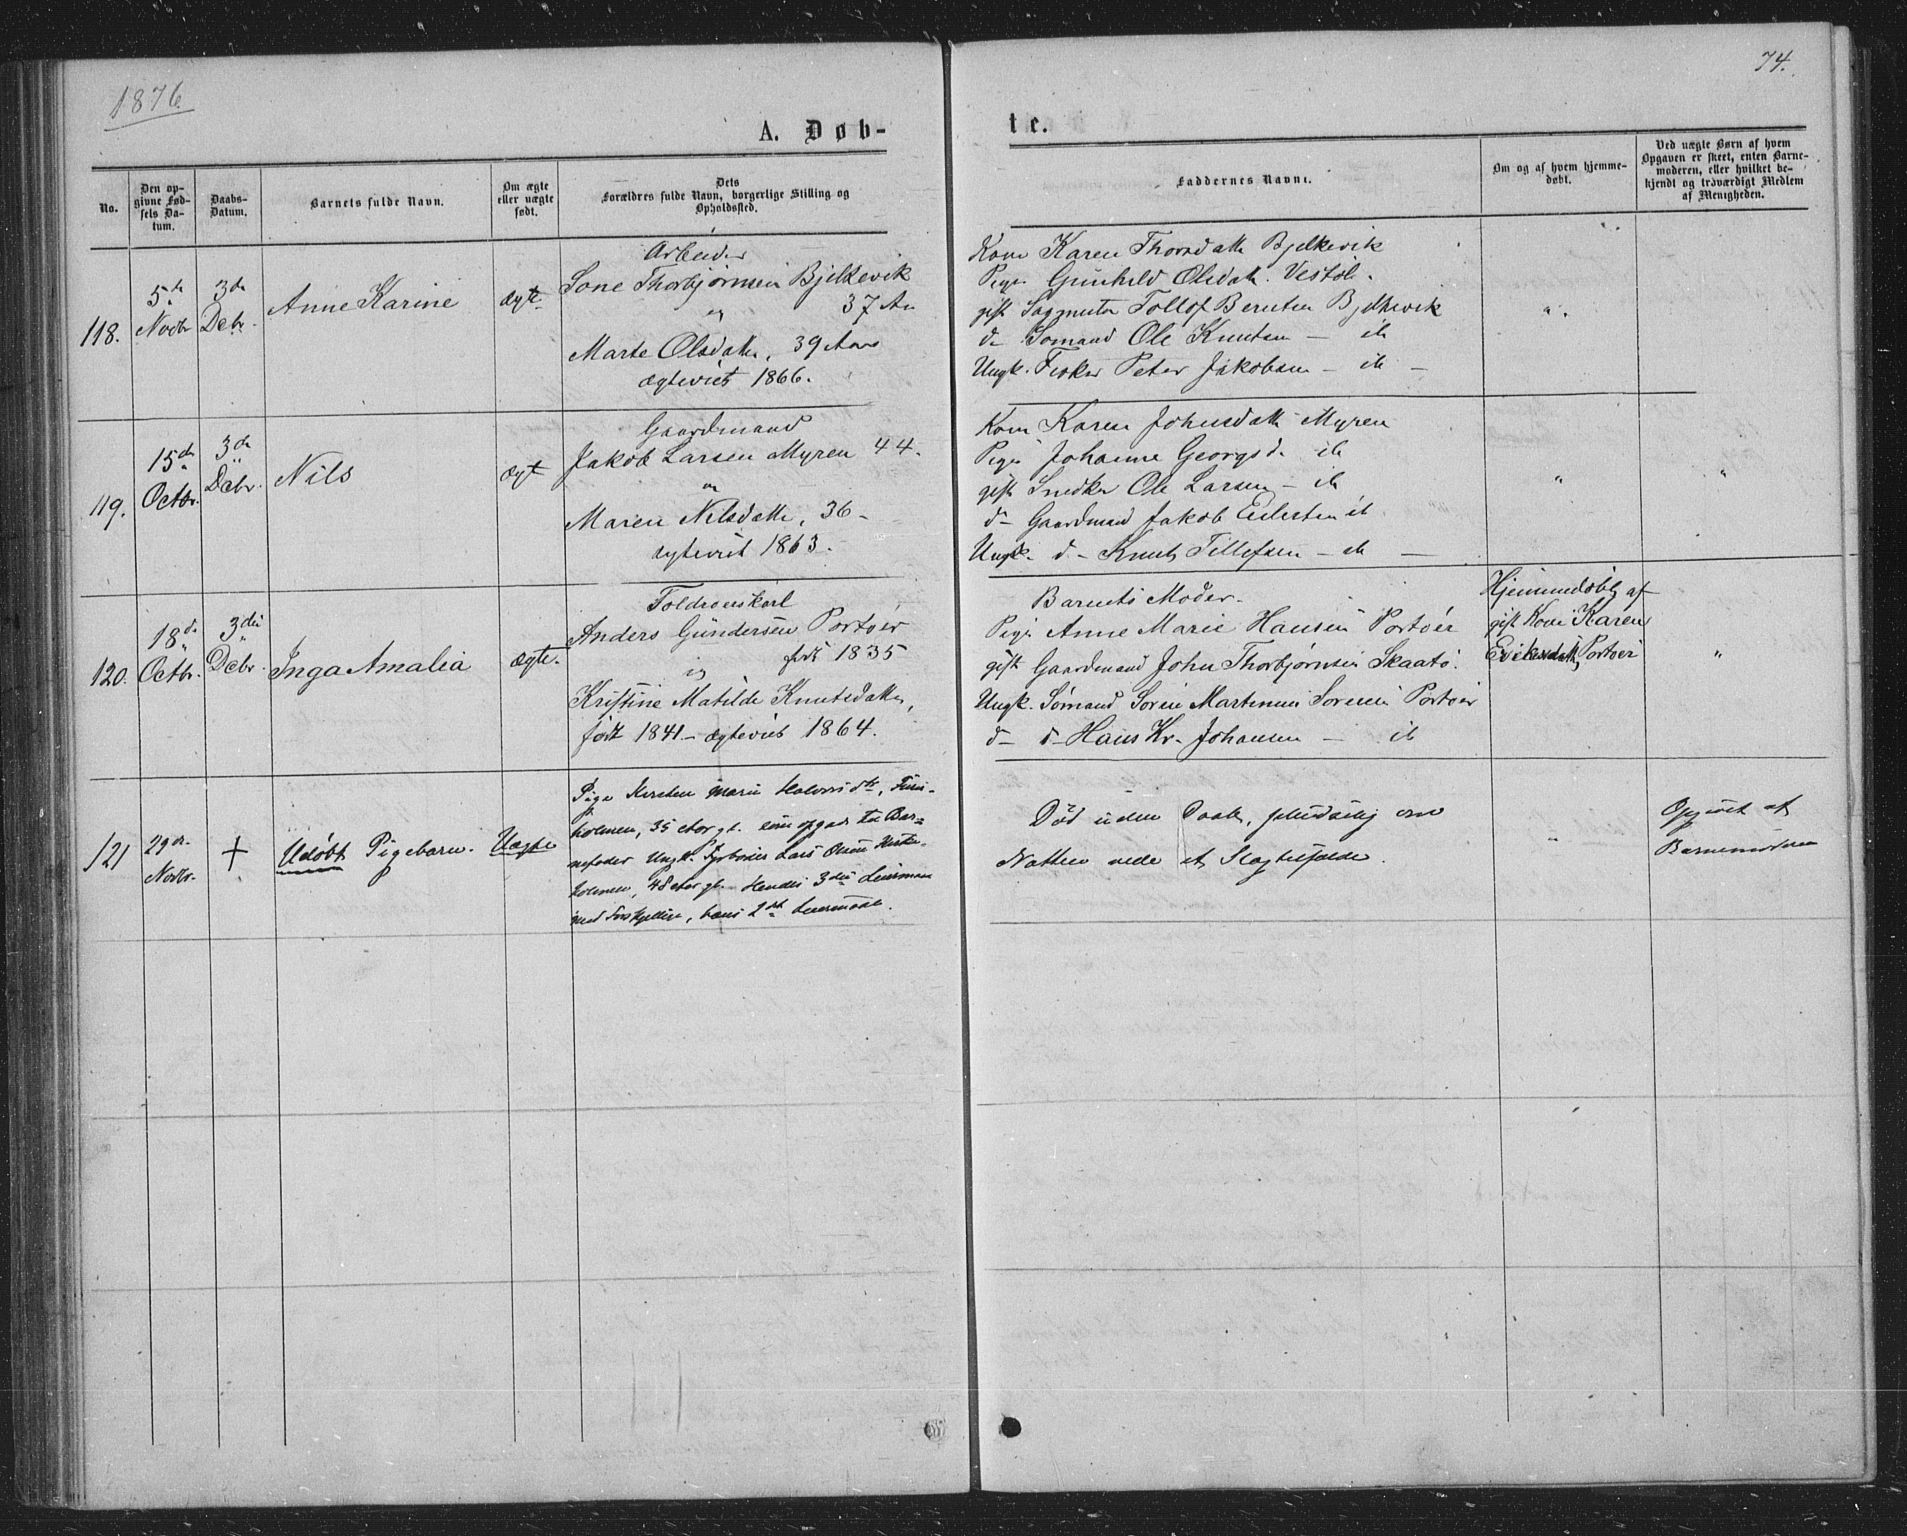 1876
74.
A. Døb-
te.
No.
Den opgivne Fødsels Datum.
Daabs-Datum.
Barnets fulde Navn.
Om ægte eller uægte født.
Dets Forældres fulde Navn, borgerlige Stilling og Opholdssted.
Faddernes Navne.
Om og af hvem hjemmedøbt.
Ved uægte Børn af hvem Opgaven er skeet, enten Barnemoderen, eller hvilket bekjendt og troværdigt Medlem af Menigheden.
118.
5te Novbr
3de Dcbr.
Anne Karine
ægte
Arbeider
Thorbjørnsen Bjelkevik
37 Aar
og
Marte Olsdatter, 39 Aar
ægteviet 1866.
Kone Karen Thorsdatt Bjelkevik
Pige Gunhild Olsdatt. Vestøl.
gift Tollof Berntsen Bjelkevik
d- Sømand Ole Knutsen - ib
Ungk. Fisker Peter Jakobsen - ib -
119.
15de Octbr.
3de Dcbr.
Nils
ægt
Gaardmand
Jakob Larsen Myren 44.
og
Maren Nilsdatte, 36 -
ægteviet 1863.
Kone Karen Johnsdatt Myren
Pige Johanne Georgsd. ib
gift Snedker Ole Larsen - ib
d- Gaardmand Jakob Eilertsen ib
Ungk. d- Knut Tellefsen - ib -
120.
18de Octbr.
3die Dcbr.
Inga Amalia
ægte.
Toldroerskarl
Anders Gundersen Portør
født 1835
og
Kristine Matilde Knutsdatter,
født 1841 - ægteviet 1864.
Barnets Moder.
Pige Anne Marie Hansen Portør
gift Gaardmand John Thorbjørnsen Skaatø.
Ungk. Sømand Søren Martinius Sørensen Portør
d- d- Hans Kr. Johansen - ib
Hjemmedøbt af
gift Kone Karen
Portør
"
121
29de Novbr.
+
Udøbt Pigebarn.
Uægte
Pige Kirsten Marie Halvorsdtr,
holmen, 35 Aar gl. som opgav til Bar-
nefader Ungk. Lars Olsen
holmen, 48 Aar gl. Hendes 3die Leiermaal
med Forskjellige, hans 2det Leiermaal.
Død uden Daab, pludselig om
Natten ved et Slagtilfælde.
"
Opgivet af
Barnemoderen